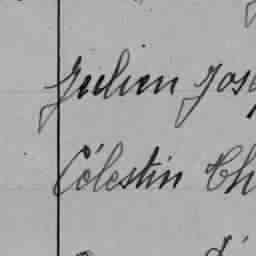 Julien Jose
Célestin Ch